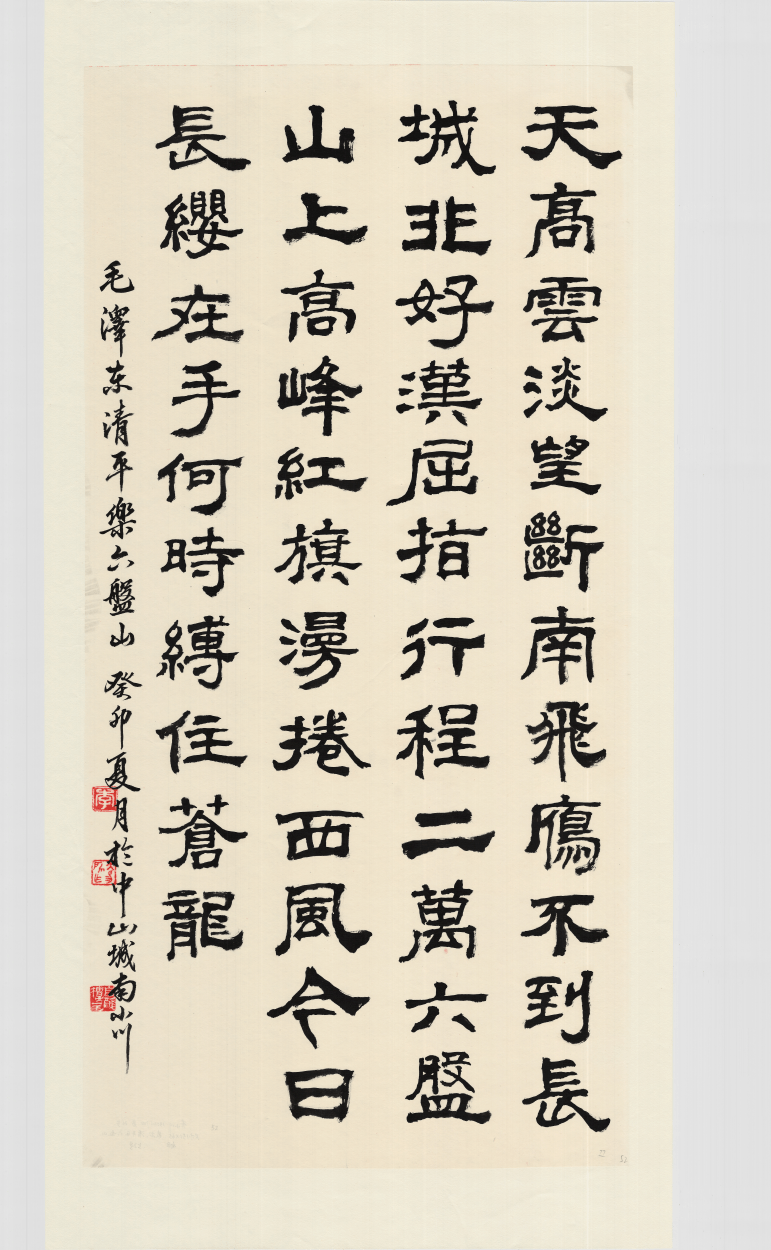 天高雲淡望斷南飛鴈不到長
城非好漢屈指行程二萬六盤
山上高峰紅旗漫捲西風今日
長纓在手何時縛住蒼龍
毛澤东清平樂六盤山 癸卯夏月於中山城南小川
李